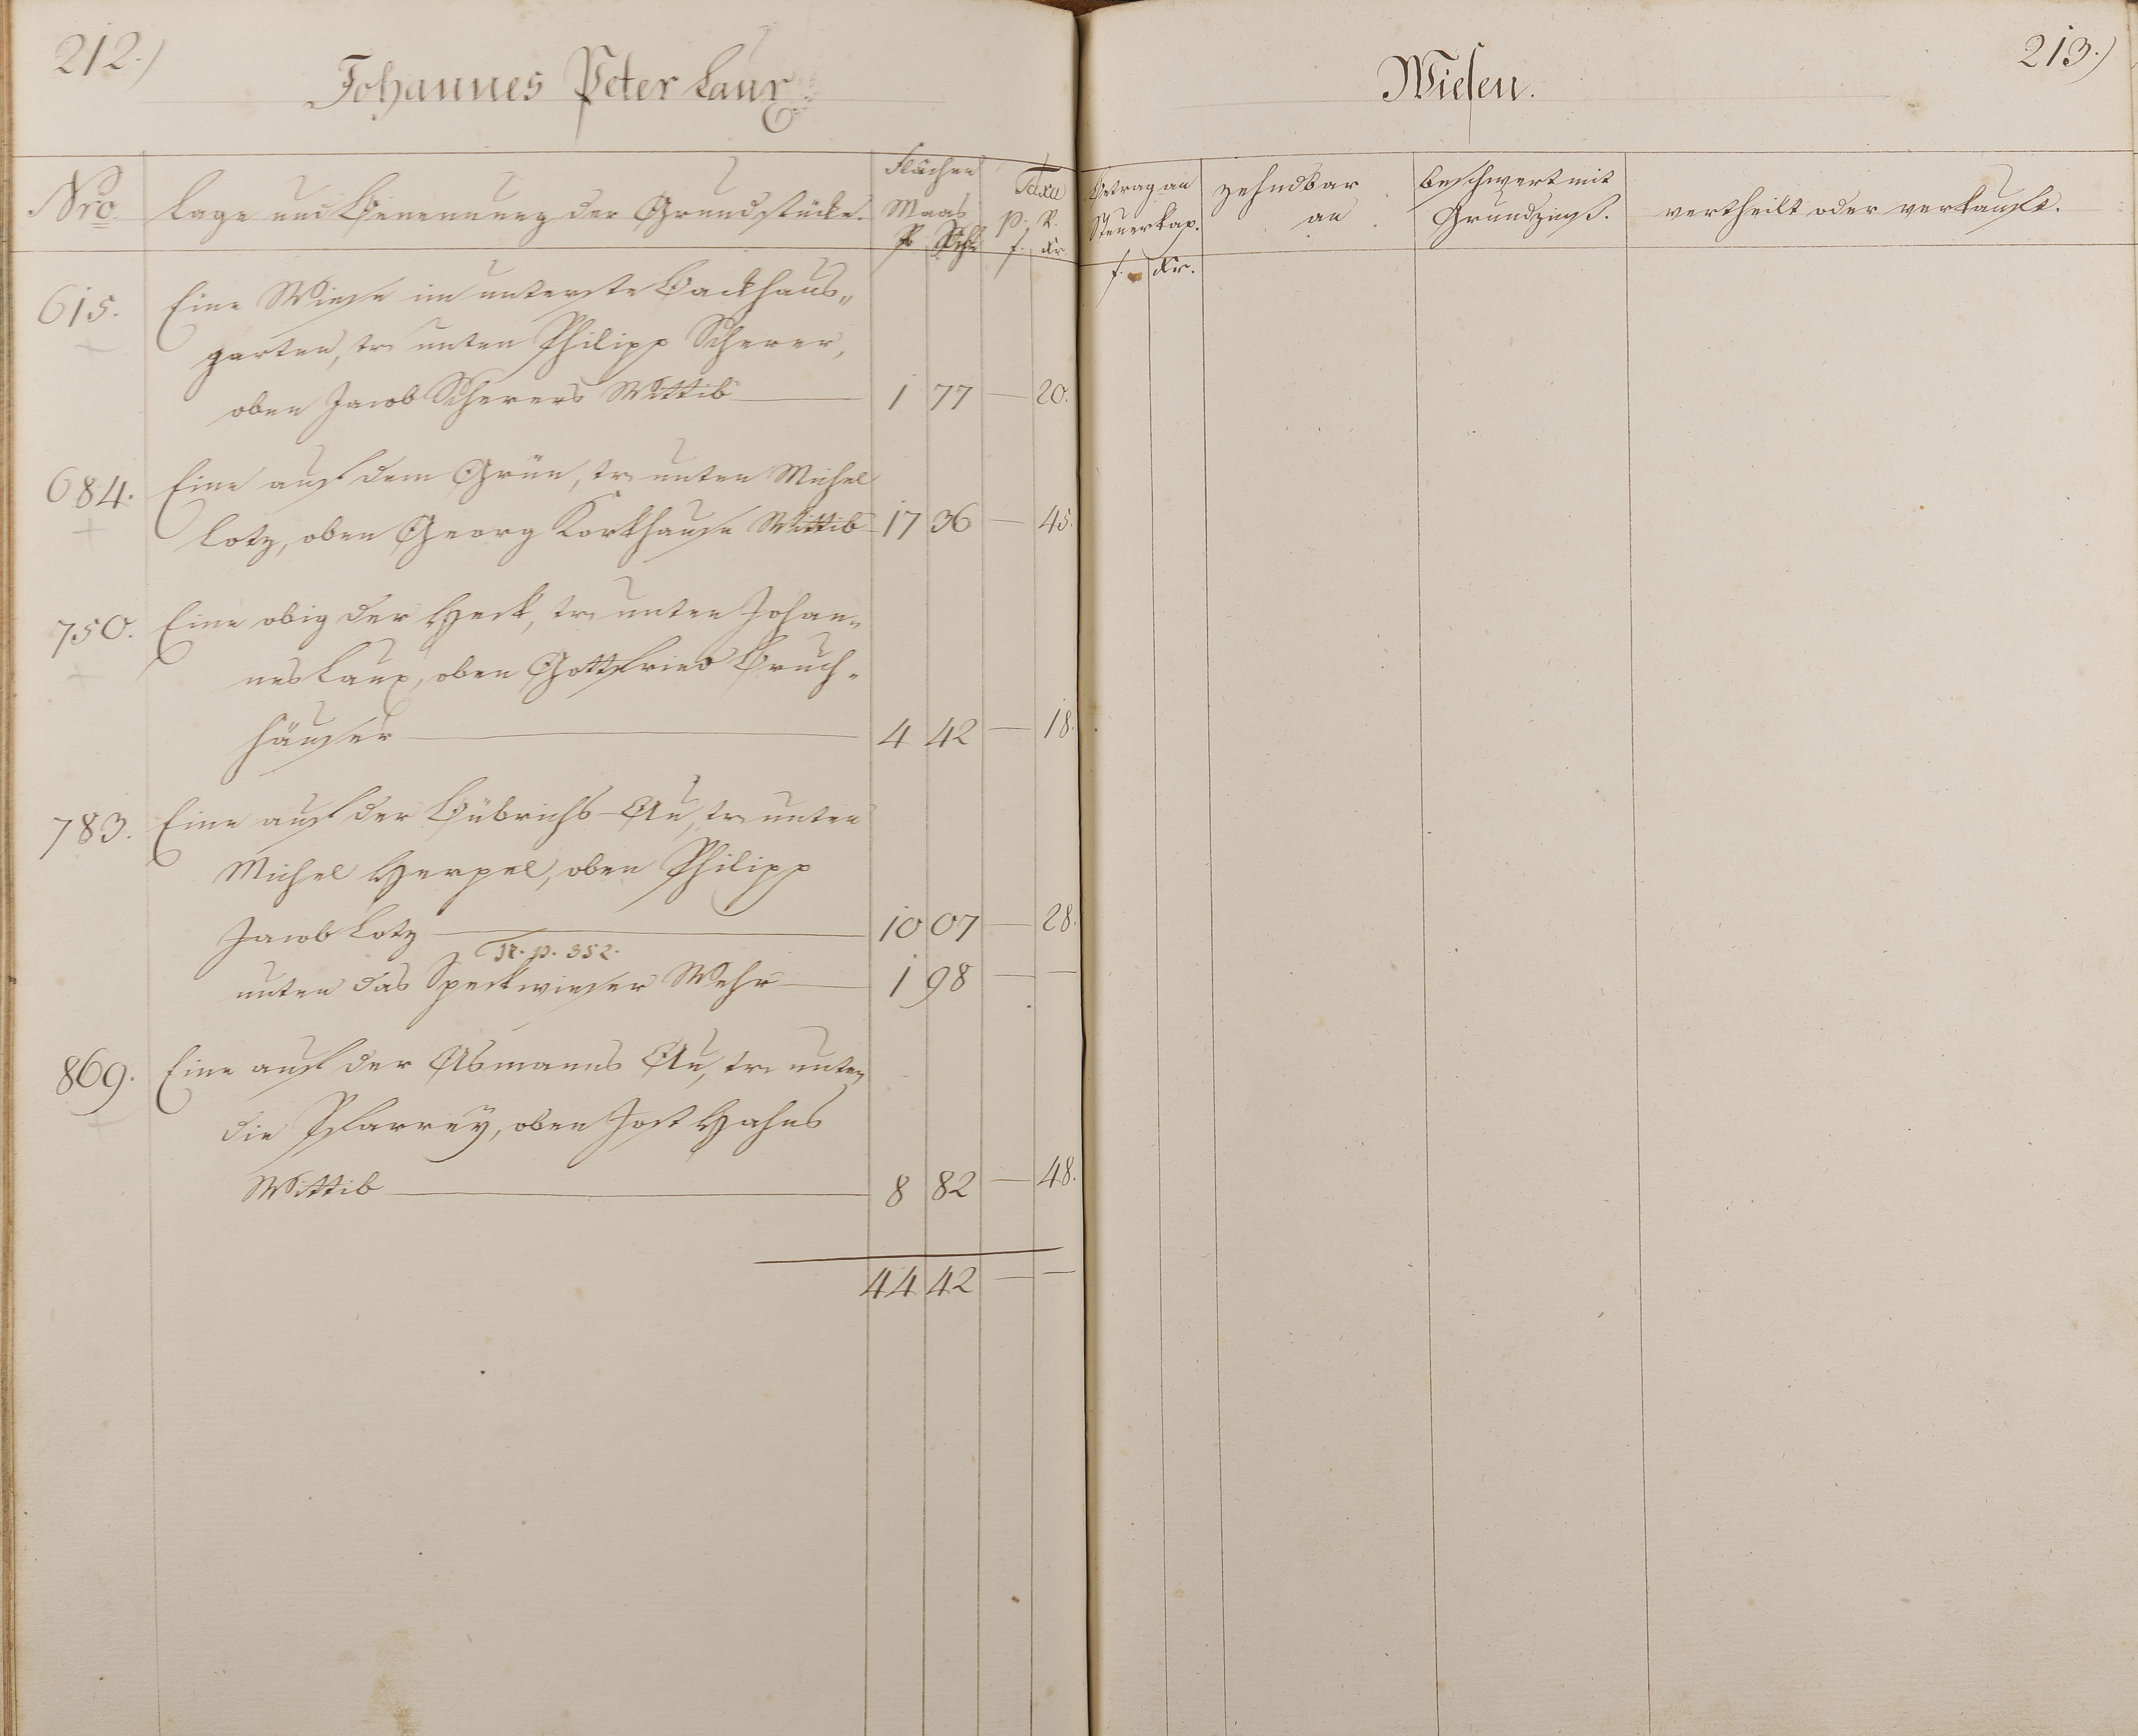 212.)
Johannes Peter Laux
Nro.
Lage und Benennung der Grundstücke.
Flächen
Maas
R. Sch.
Taxa
p. R.
f. Kr.
615. Eine Wiese im unterste Backhaus„
garten, tr. unten Philipp Scherer,
oben Jacob Scherers Wittib — 1 77 — 20.
684. Eine auf dem Grün, tr. unten Michel
Lotz, oben Georg Korkhause Wittib 17 36 — 45.
750. Eine obig der Heck, tr. unten Johan„
nes Laux, oben Gottfried Bruch„
häuser — 4 42 — 18.
783. Eine auf der Au, tr. unten
Michel Herpel, oben Philipp
Jacob Lotz — 10 07 — 28.
Tr. p. 352.
unten das Speckwieser Wehr — 1 98 — —
869. Eine auf der Asmanns Au, tr. unten
die Pfarrey, oben Jost Hahns
Wittib — 8 82 — 48.
44 42 — —
213.)
Wiesen.
Betrag an
Steuerkap.
f. Kr.
zehndbar
an
beschwert mit
Grundzinß.
vertheilt oder verkauft.